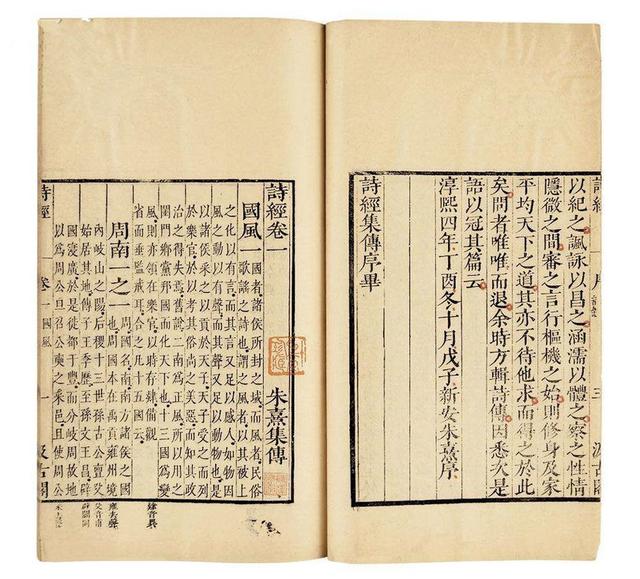 三
以紀之諷詠以昌之涵濡以體之察之性情
隱微之間審之言行樞機之始則修身及家
平均天下之道其亦不待他求而得之於此
矣問者唯唯而退余時方輯詩傳因悉次是
語以冠其篇云
淳熙四年丁酉冬十月戊子新安朱熹序
詩經集傳序畢
詩經卷一
朱熹集傳
國風一 國者諸侯所封之域而風者民俗
歌謠之詩也謂之風者以其被上
之化以有言而其言又足以感人如物因
風之動以有聲而其聲又足以動物也是
以諸侯采之以貢於天子天子受之而列
於樂官於以考其俗尚之美惡而知其政
治之得失焉舊說二南為正風所以用之
閨門鄉黨邦國而化天下也十三國為變
風則亦領在樂官以時存肄備觀
省而垂監戒耳合之凡十五國云
周南一之一 周國名南南方諸侯之國
也周國本在禹貢雍州境
內岐山之陽后稷十三世孫古公亶父
始居其地傳子季歷至孫文王昌辟
國寖廣於是徙都于豐而分岐周故地
以為周公旦召公奭之采邑且使周公
肄音異
雍去聲
父音甫
辟闢同
詩經 卷一 國風 一 汲古閣